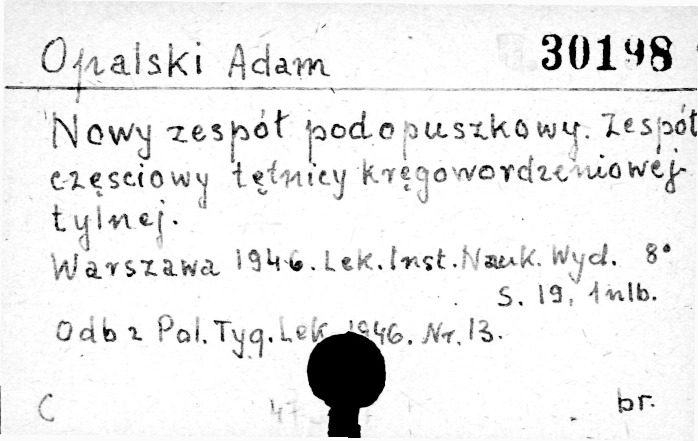 Opalski Adam 30198
Nowy zespół podopuszkowy. Zespół
częsciowy tętnicy kręgowordzeniowej
tylnej.
Warszawa 1946. Lek. Inst. Nauk. Wyd. 8°
S. 19, 1 nlb.
Odb z Pol. Tyg. Lek 1946. Nr. 13.
C 47 br.